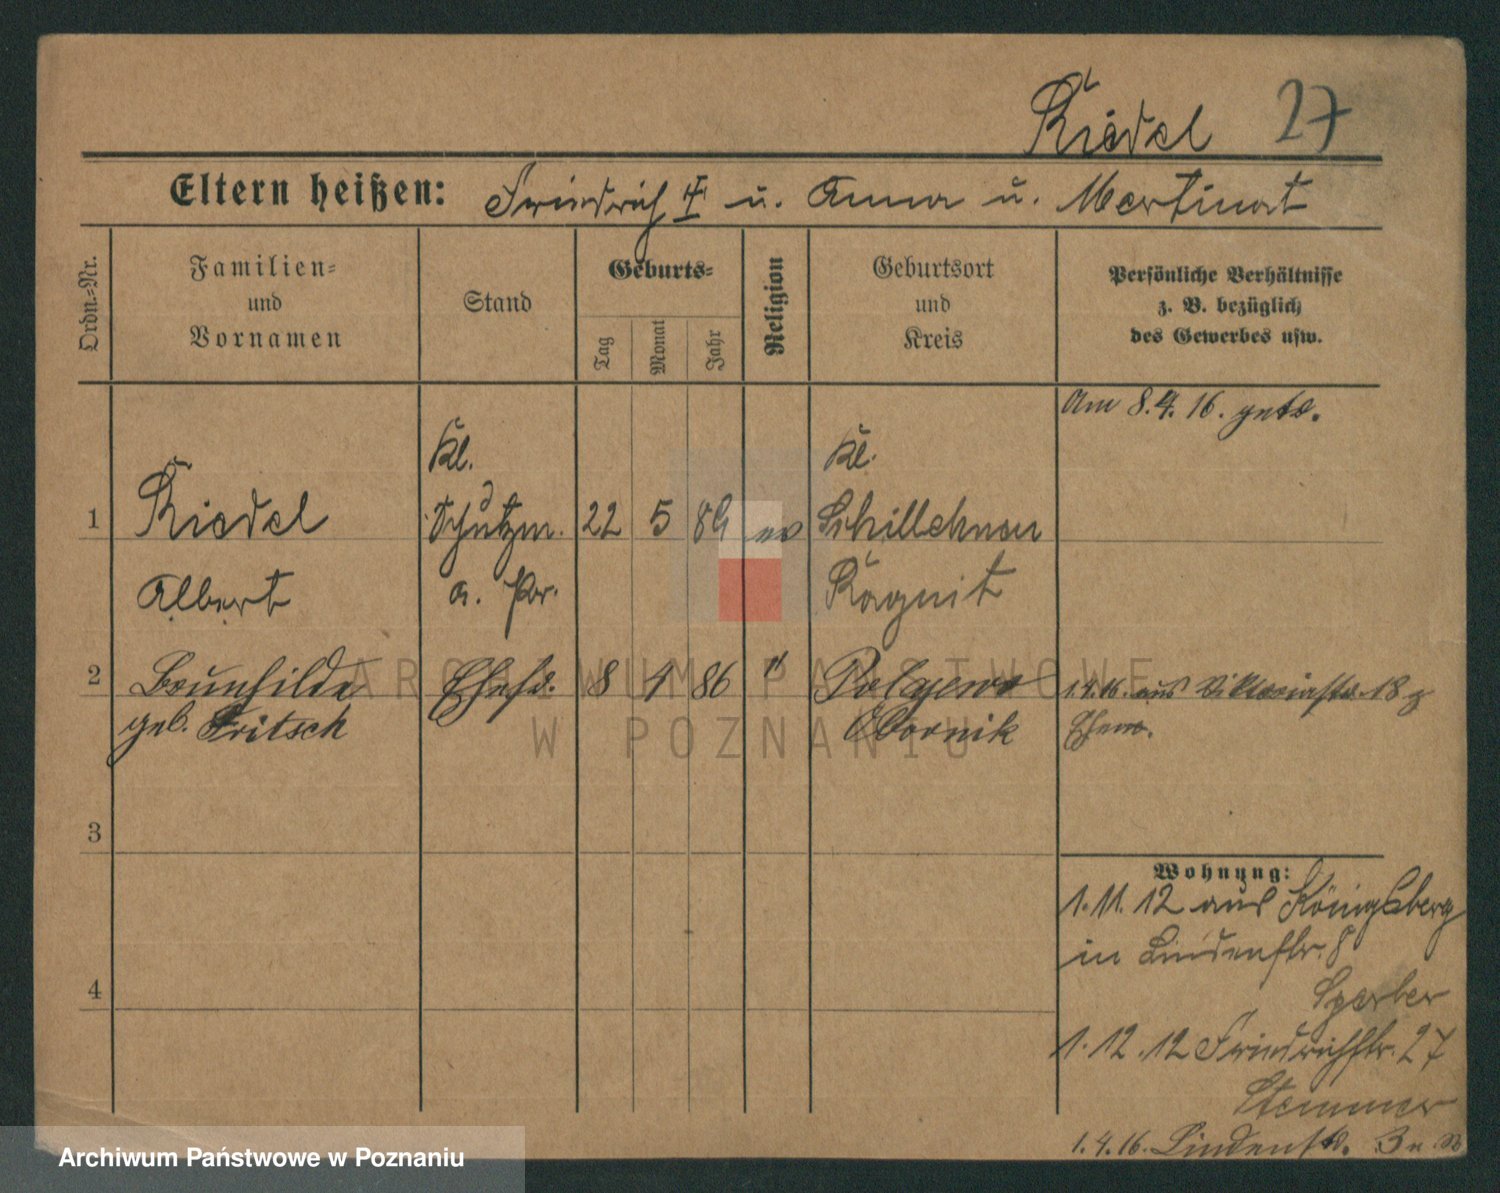 Riedel 27
Eltern heißen: Friedrich † u. Anna u. Mertinat
Ordn.-Nr.
Familien-
und
Vornamen
Stand
Geburts-
Tag
Monat
Jahr
Religion
Geburtsort
und
Kreis
Persönliche Verhältnisse
z. B. bezüglich
des Gewerbes usw.
Am 8.4.16. getr.
Kl. Kl.
1 Riedel Schutzm. 22 5 89 ev Schillehnen
Albert a. Pr. Ragnit
2 Brunhilde Ehefr. 8 4 86 " Polajewo 1.4.16. aus Viktoriastr. 18 z
geb. Fritsch Obornik Ehem.
3
4
Wohnung:
1.11.12 aus Königsberg
in Lindenstr. 8
Sperber
1.12.12 Friedrichstr. 27
Stemmer
1.4.16. Lindenstr. 3
ARCHIWUM PAŃSTWOWE
W POZNANIU
Archiwum Państwowe w Poznaniu